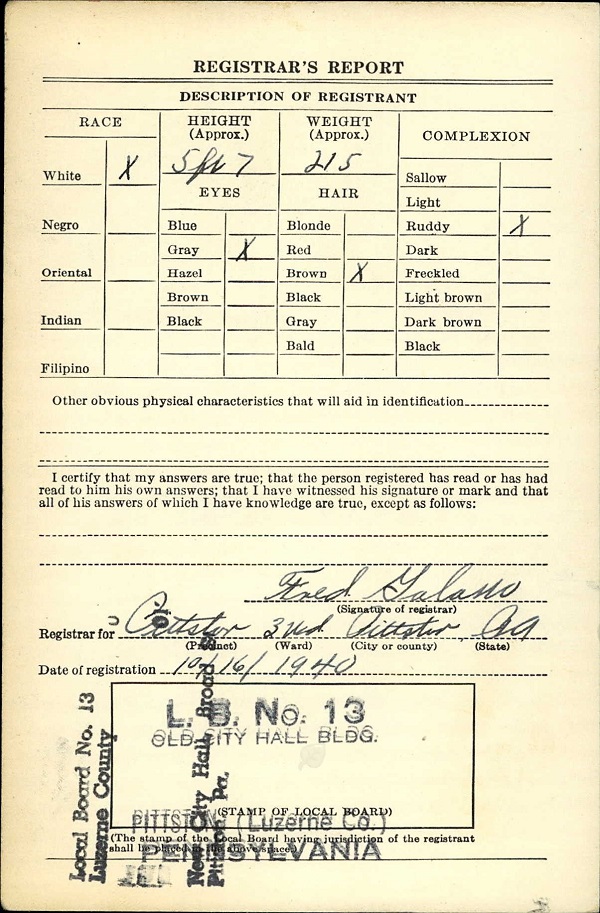 REGISTRAR'S REPORT
DESCRIPTION OF REGISTRANT
RACE
HEIGHT
(Approx.)
WEIGHT
(Approx.)
COMPLEXION
White X
5 ft 7
215
Sallow
EYES
HAIR
Light
Negro
Blue
Blonde
Ruddy X
Gray X
Red
Dark
Oriental
Hazel
Brown X
Freckled
Brown
Black
Light brown
Indian
Black
Gray
Dark brown
Bald
Black
Filipino
Other obvious physical characteristics that will aid in identification
I certify that my answers are true; that the person registered has read or has had
read to him his own answers; that I have witnessed his signature or mark and that
all of his answers of which I have knowledge are true, except as follows:
Fred
(Signature of registrar)
Registrar for Pittston 3rd Pittston Pa
(Precinct) (Ward) (City or county) (State)
Date of registration 10/16/1940
L. B. No. 13
OLD CITY HALL BLDG.
(STAMP OF LOCAL BOARD)
PITTSTON (Luzerne Co.)
(The stamp of the Local Board having jurisdiction of the registrant
shall be placed in the above space.)
PENNSYLVANIA
Local Board No. 13
Luzerne County
New City Hall Broad
Pa.